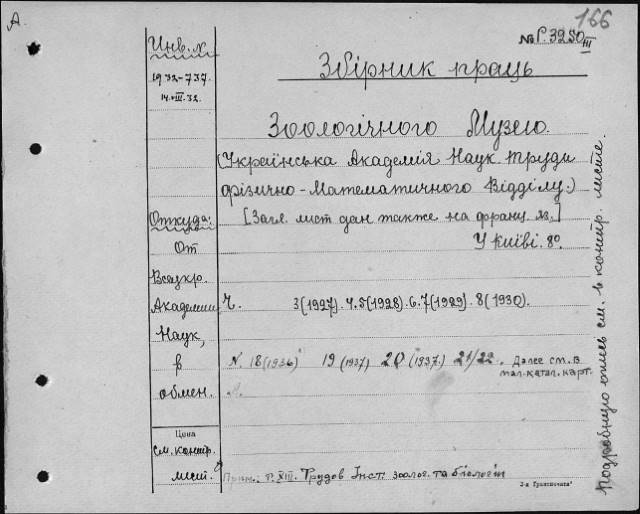 A.
166
№ Р. 3250/III
Инв. №
1932-737.
14.III.32.
Збірник праць
Зоологічного Музею.
(Українська Академія Наук. Труди
фізично-Математичного Відділу.)
[Загл. лист дан также на франц. яз.]
У Київі. 8º.
Откуда:
От
Всеукр.
Академии
Наук,
в
обмен.
Ч. 3(1927). 4.5(1928). 6.7(1929). 8(1930).
N. 18(1936) 19(1937) 20(1937.) 21/22. Далее см. в
мал. катал. карт.
Цена
см. контр.
лист.
Прим.: т. XIII. Трудов Інст. зоолог. та біологіи
2-я Гравпечата
Подробную опись см. в контр. листе.